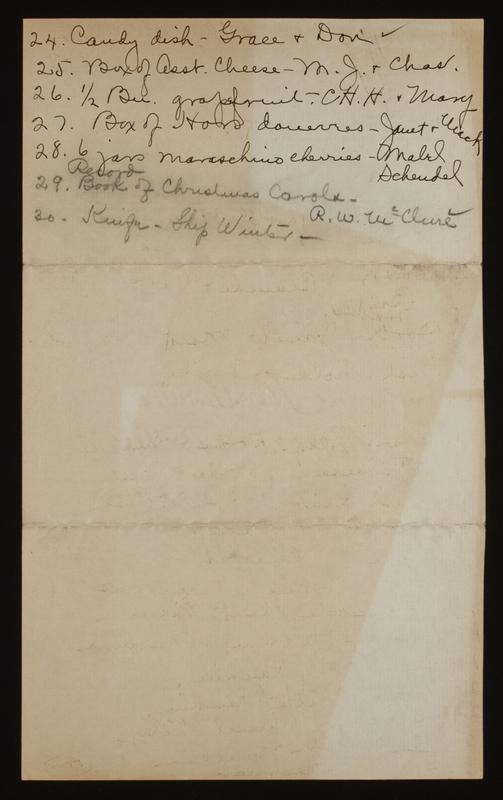 24. Candy dish - Grace & Don ✓
25. Box of Asst. Cheese - M. J. & Chas.
26. 1/2 Bu. grapefruit - C.H.H. & Mary
27. Box of Hors douerres - Janet & Mack
28. 6 jars maraschino cherries - Mabel Schendel
Record
29. Book of Christmas Carols - R. W. McClure
30. - Ship Winter -